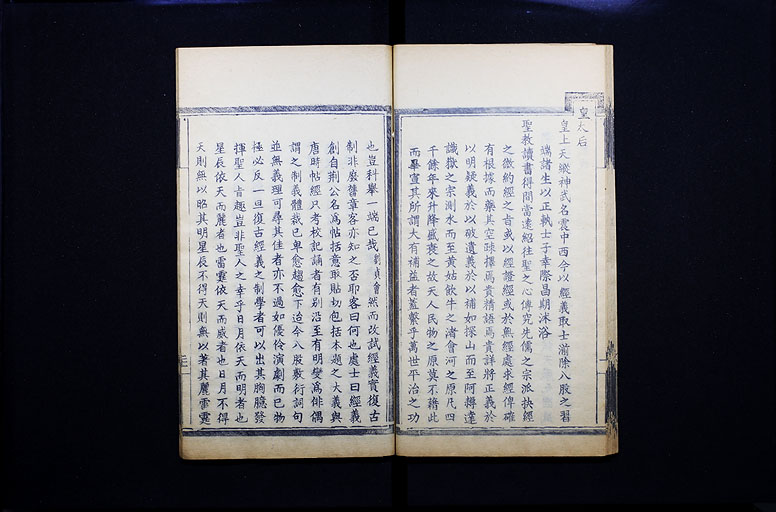 皇太后
皇上天縱神武名震中西今以經義取士湔除八股之習
端諸生以正執士子幸際昌期沐浴
聖教讀書得間當遠紹往聖之心傳究先儒之宗派抉經
之微約經之旨或以經證經或於無經處求經俾確
有根據而藥其空疎擇焉貴精語焉貴詳將正義於
以明疑義於以破遺義於以補如探山而至阿耨達
識嶽之宗測水而至黃姑飲牛之渚會河之原凡四
千餘年來升降盛衰之故天人民物之原莫不藉此
而畢宣其所謂大有補益者蓋繫乎萬世平治之功
也豈科舉一端已哉 然而改試經義實復古
制非廢舊章客亦知之否耶客曰何也處士曰經義
創自荆公名為帖括意取貼切包括本題之大義與
唐時帖經只考校記誦者有别沿至有明變為俳偶
謂之制義體裁已卑愈趨愈下迨今八股敷衍詞句
並無義理可尋其佳者亦不過如優伶演劇而已物
極必反一旦復古經義之制學者可以出其胸臆發
揮聖人旨趣豈非聖人之幸乎日月依天而明者也
星辰依天而麗者也雷霆依天而威者也日月不得
天則無以昭其明星辰不得天則無以著其麗雷霆